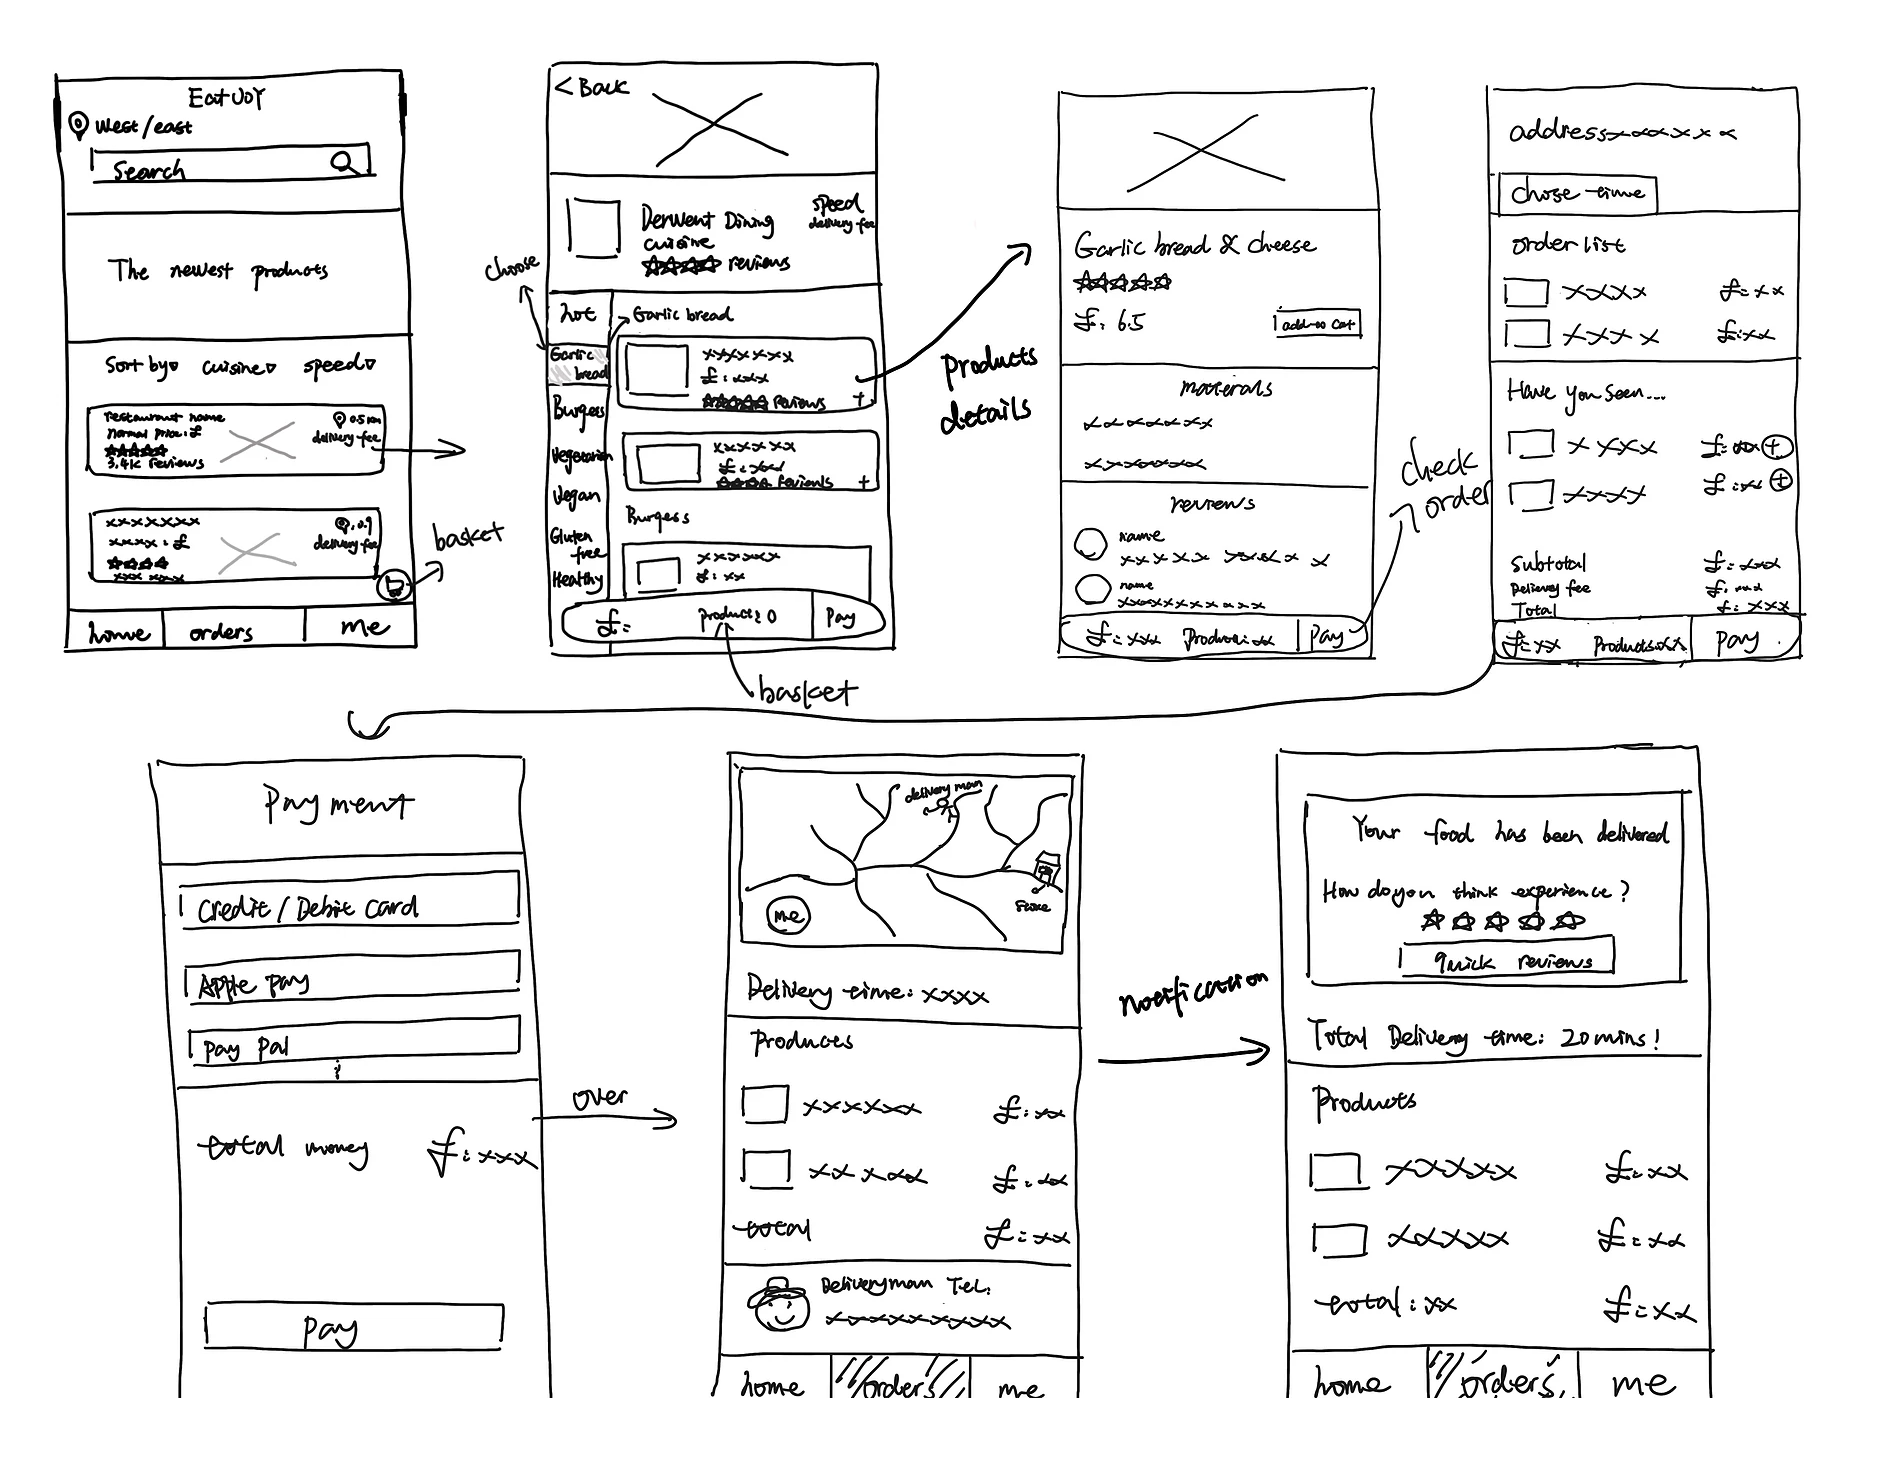 EatJoY
West/east
Search
The newest products
Sort by cuisine speed
restaurant name
normal price: £
0.5 km
delivery fee
3.4K reviews
xxxxxxx
xxxx: £
0.9
delivery fee
xxx xxx
basket
home orders me
< Back
Derwent Dining
cuisine
reviews
speed
delivery fee
choose
hot
Garlic bread
Burgess
Vegetarian
Vegan
Gluten free
Healthy
Garlic bread
xxxxxxx
£: xxx
reviews +
xxxxxx
£: xxx
reviews +
Burgess
xxxxxx
£: xx
£: product: 0 Pay
basket
Products details
Garlic bread & cheese
£: 6.5
add to cat
materials
xxxxxxx
xxxxxxx
reviews
name
xxxxx xxxx x x
name
xxxxxxxxxxx
£: xxx Product: xx Pay
check order
address xxxxxx
chose time
order list
xxxx £: xx
xxxx £: xx
Have you seen...
x xxx £: xx +
xxxx £: xx +
Subtotal £: xxx
Delivery fee £: xxx
Total £: xxx
£: xx Products: xx Pay
Payment
Credit / Debit card
Apple pay
Pay Pal
total money £: xxx
Pay
over
delivery man
me
store
Delivery time: xxxx
Products
xxxxxx £: xx
xxxxx £: xx
total £: xx
Deliveryman Tel:
xxxxxxxxx
home orders me
notification
Your food has been delivered
How do you think experience?
quick reviews
Total Delivery time: 20 mins!
Products
xxxxx £: xx
xxxxx £: xx
total: xx £: xx
home orders me